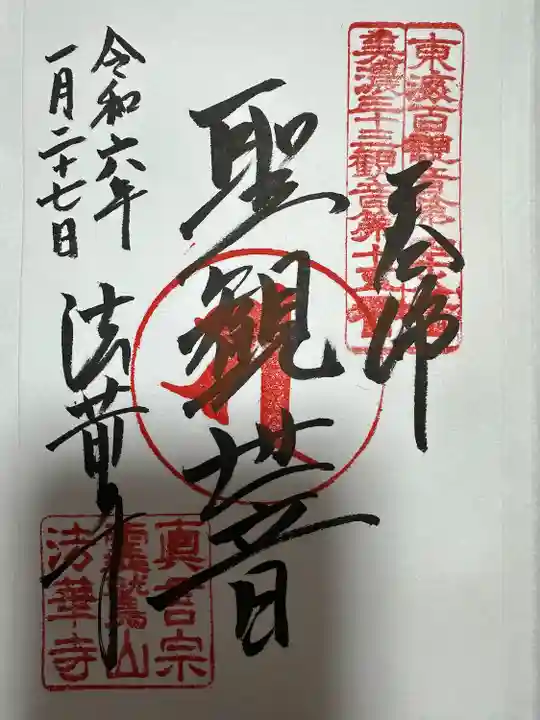 奉拝
東海百観音第
美濃三十三観音第十
聖観世音
令和六年
一月二十七日
法華寺
真言宗
霊鷲山
法華寺